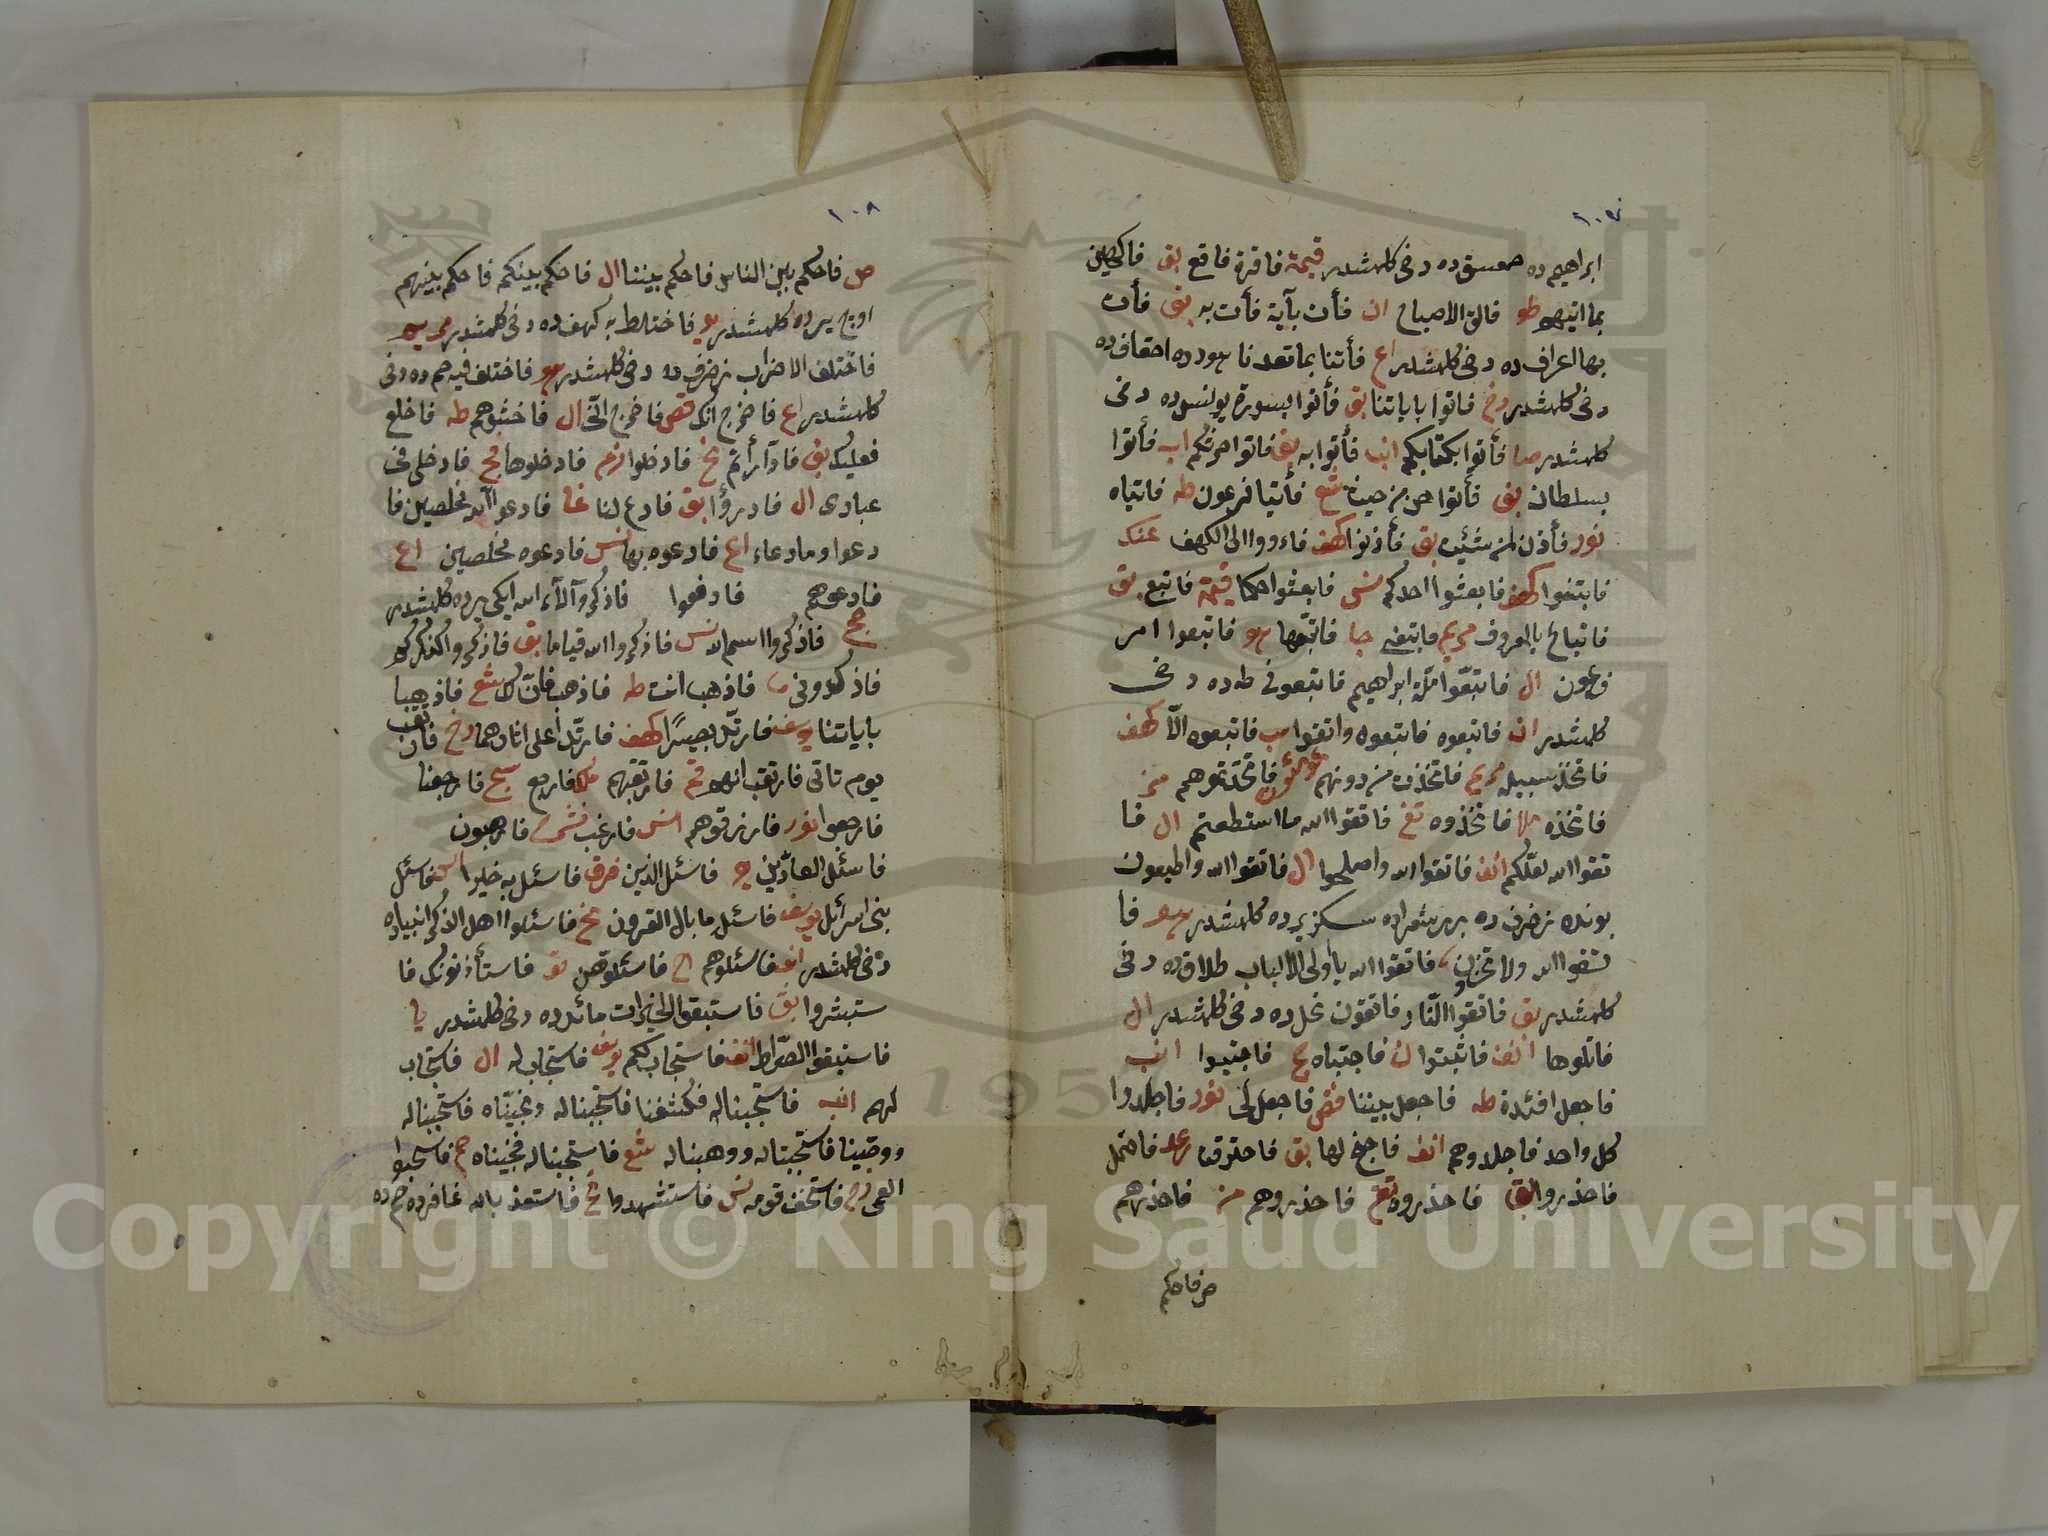 ١٠٧
ابراهيم ده حمعسق ده دخى كلمشدر قيمة فاقرة فاقع بق فاكهين
بما اتيهم طو فالق الاصباح ان فأت بآية فأت به بق فأت
بها اعراف ده دخى كلمشدر اع فأتنا بما تعدنا هود ده احقاف ده
دخى كلمشدر دخ فاتوا باياتنا بق فأتوا بسورة يونسده دخى
كلمشدر صا فأتوا بكتابكم انب فأتوا به بق فاتوا حرثكم اب فأتوا
بسلطان بق فأتوا من حيث شع فأتيا فرعون طه فاتياه
نور فأذن لمن شئت بق فأذنوا كهف فاووا الى الكهف عنك
فابتغوا كهف فابعثوا احدكم نس فابعثوا حكما قيمة فاتبع بق
فاتباع بالمعروف مريم فاتبعنى جا فاتبعها هو فاتبعوا امر
فرعون ال فاتبعوا ملة ابراهيم فاتبعونى طه ده دخى
كلمشدر ان فاتبعوه فاتبعوه واتقوا سب فاتبعوه الا كهف
فاتخذ سبيله مريم فاتخذت من دونهم مؤ فاتخذتموهم مز
فاتخذه فاتخذوه تغ فاتقوا الله ما استطعتم ال فا
تقوا الله لعلكم انف فاتقوا الله واصلحوا ال فاتقوا الله واطيعون
بونده زخرف ده بر شعراده سكز يرده كلمشدر هو فا
تقوا الله ولا تخزون فاتقوا الله يا اولى الالباب طلاق ده دخى
كلمشدر بق فاتقوا النار فاتقون نحل ده دخى كلمشدر ال
فاتلوها انف فاثبتوا ن فاجتباه ج فاجتنبوا انب
فاجعل افئدة طه فاجعل بيننا قص فاجعل لى نور فاجلدوا
كل واحد فاجلدوهم انف فاجنح لها بق فاحترقت رعد فاحتمل
فاحذروا بق فاحذروه تغ فاحذروهم مز فاحذرهم
ص فاحكم
١٠٨
ص فاحكم بين الناس فاحكم بيننا ال فاحكم بينكم فاحكم بينهم
اوچ يرده كلمشدر يو فاختلط به كهف ده دخى كلمشدر مريم
فاختلف الاحزاب زخرف ده دخى كلمشدر هو فاختلف فيه حم ده دخى
كلمشدر اع فاخرج انك قص فاخرج انى ال فاخشوهم طه فاخلع
نعليك بق فادارأتم نح فادخلوا زم فادخلوها فج فادخلى فى
عبادى ال فادرؤا بق فادع لنا غا فادعوا الله مخلصين فا
دعوا وما دعاء اع فادعوه بها نس فادعوه مخلصين اع
فادعوهم فادفعوا فاذكروا آلاء الله ايكى يرده كلمشدر
حج فاذكروا اسم الله نس فاذكروا الله قياما بق فاذكروا كذكركم
فاذكرونى ما فاذهب انت طه فاذهب فان لك شع فاذهبا
باياتنا يوسف فارتد بصيرا كهف فارتدا على اثارهما دخ فارتقب
يوم تاتى فارتقب انهم قم فارتقبهم ملك فارجع سج فارجعنا
فارجعوا نور فارزقوهم نس فارغب نشرح فارهبون
فاسئل العادين و فاسئل الذين فرق فاسئل به خبيرا اس فاسئل
بنى اسرائيل يوسف فاسئله ما بال القرون نح فاسئلوا اهل الذكر انبياده
دخى كلمشدر انب فاسئلوهم اح فاسئلوهن تو فاستأذنوك فا
ستبشروا بق فاستبقوا الخيرات مائده ده دخى كلمشدر يا
فاستبقوا الصراط انف فاستجاب لكم يوسف فاستجاب له ال فاستجاب
لهم انب فاستجبنا له فكشفنا فاستجبنا له ونجيناه فاستجبنا له
ووهبنا فاستجبنا له ووهبنا له شع فاستجبنا له فنجيناه حم فاستحبوا
العمى زخ فاستخف قومه نس فاستشهدوا نح فاستعذ بالله غافرده حم ده